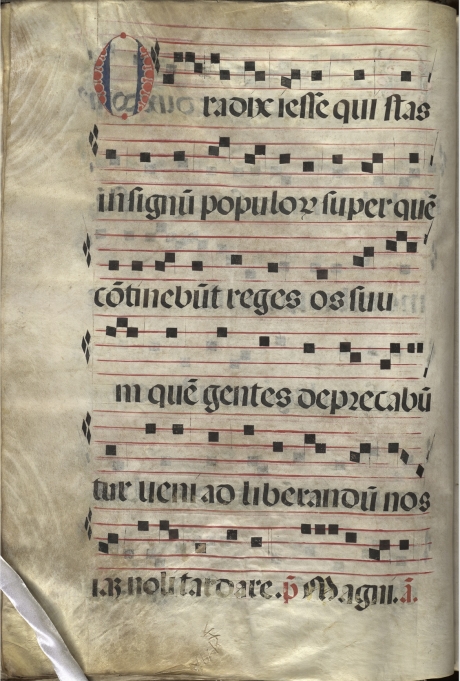 O radix iesse qui stas
in signū populoꝝ super quē
cōtinebūt reges os suu
in quē gentes deprecabū
tur ueni ad liberandū nos
iaꝫ noli tardare. p̄ Magni. ā.